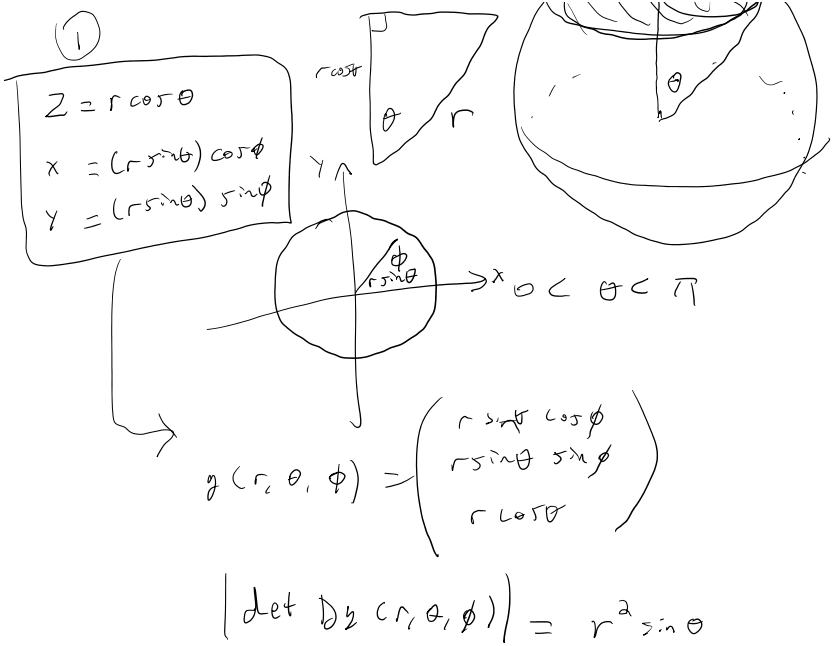 ①
Z = r cos θ
x = (r sinθ) cos ϕ
y = (r sinθ) sin ϕ
r cosθ
θ
r
θ
Y
ϕ
r sinθ
x
0 < θ < π
g (r, θ, ϕ) = ( r sinθ cos ϕ
r sinθ sin ϕ
r cosθ )
|det Dg (r, θ, ϕ)| = r² sin θ